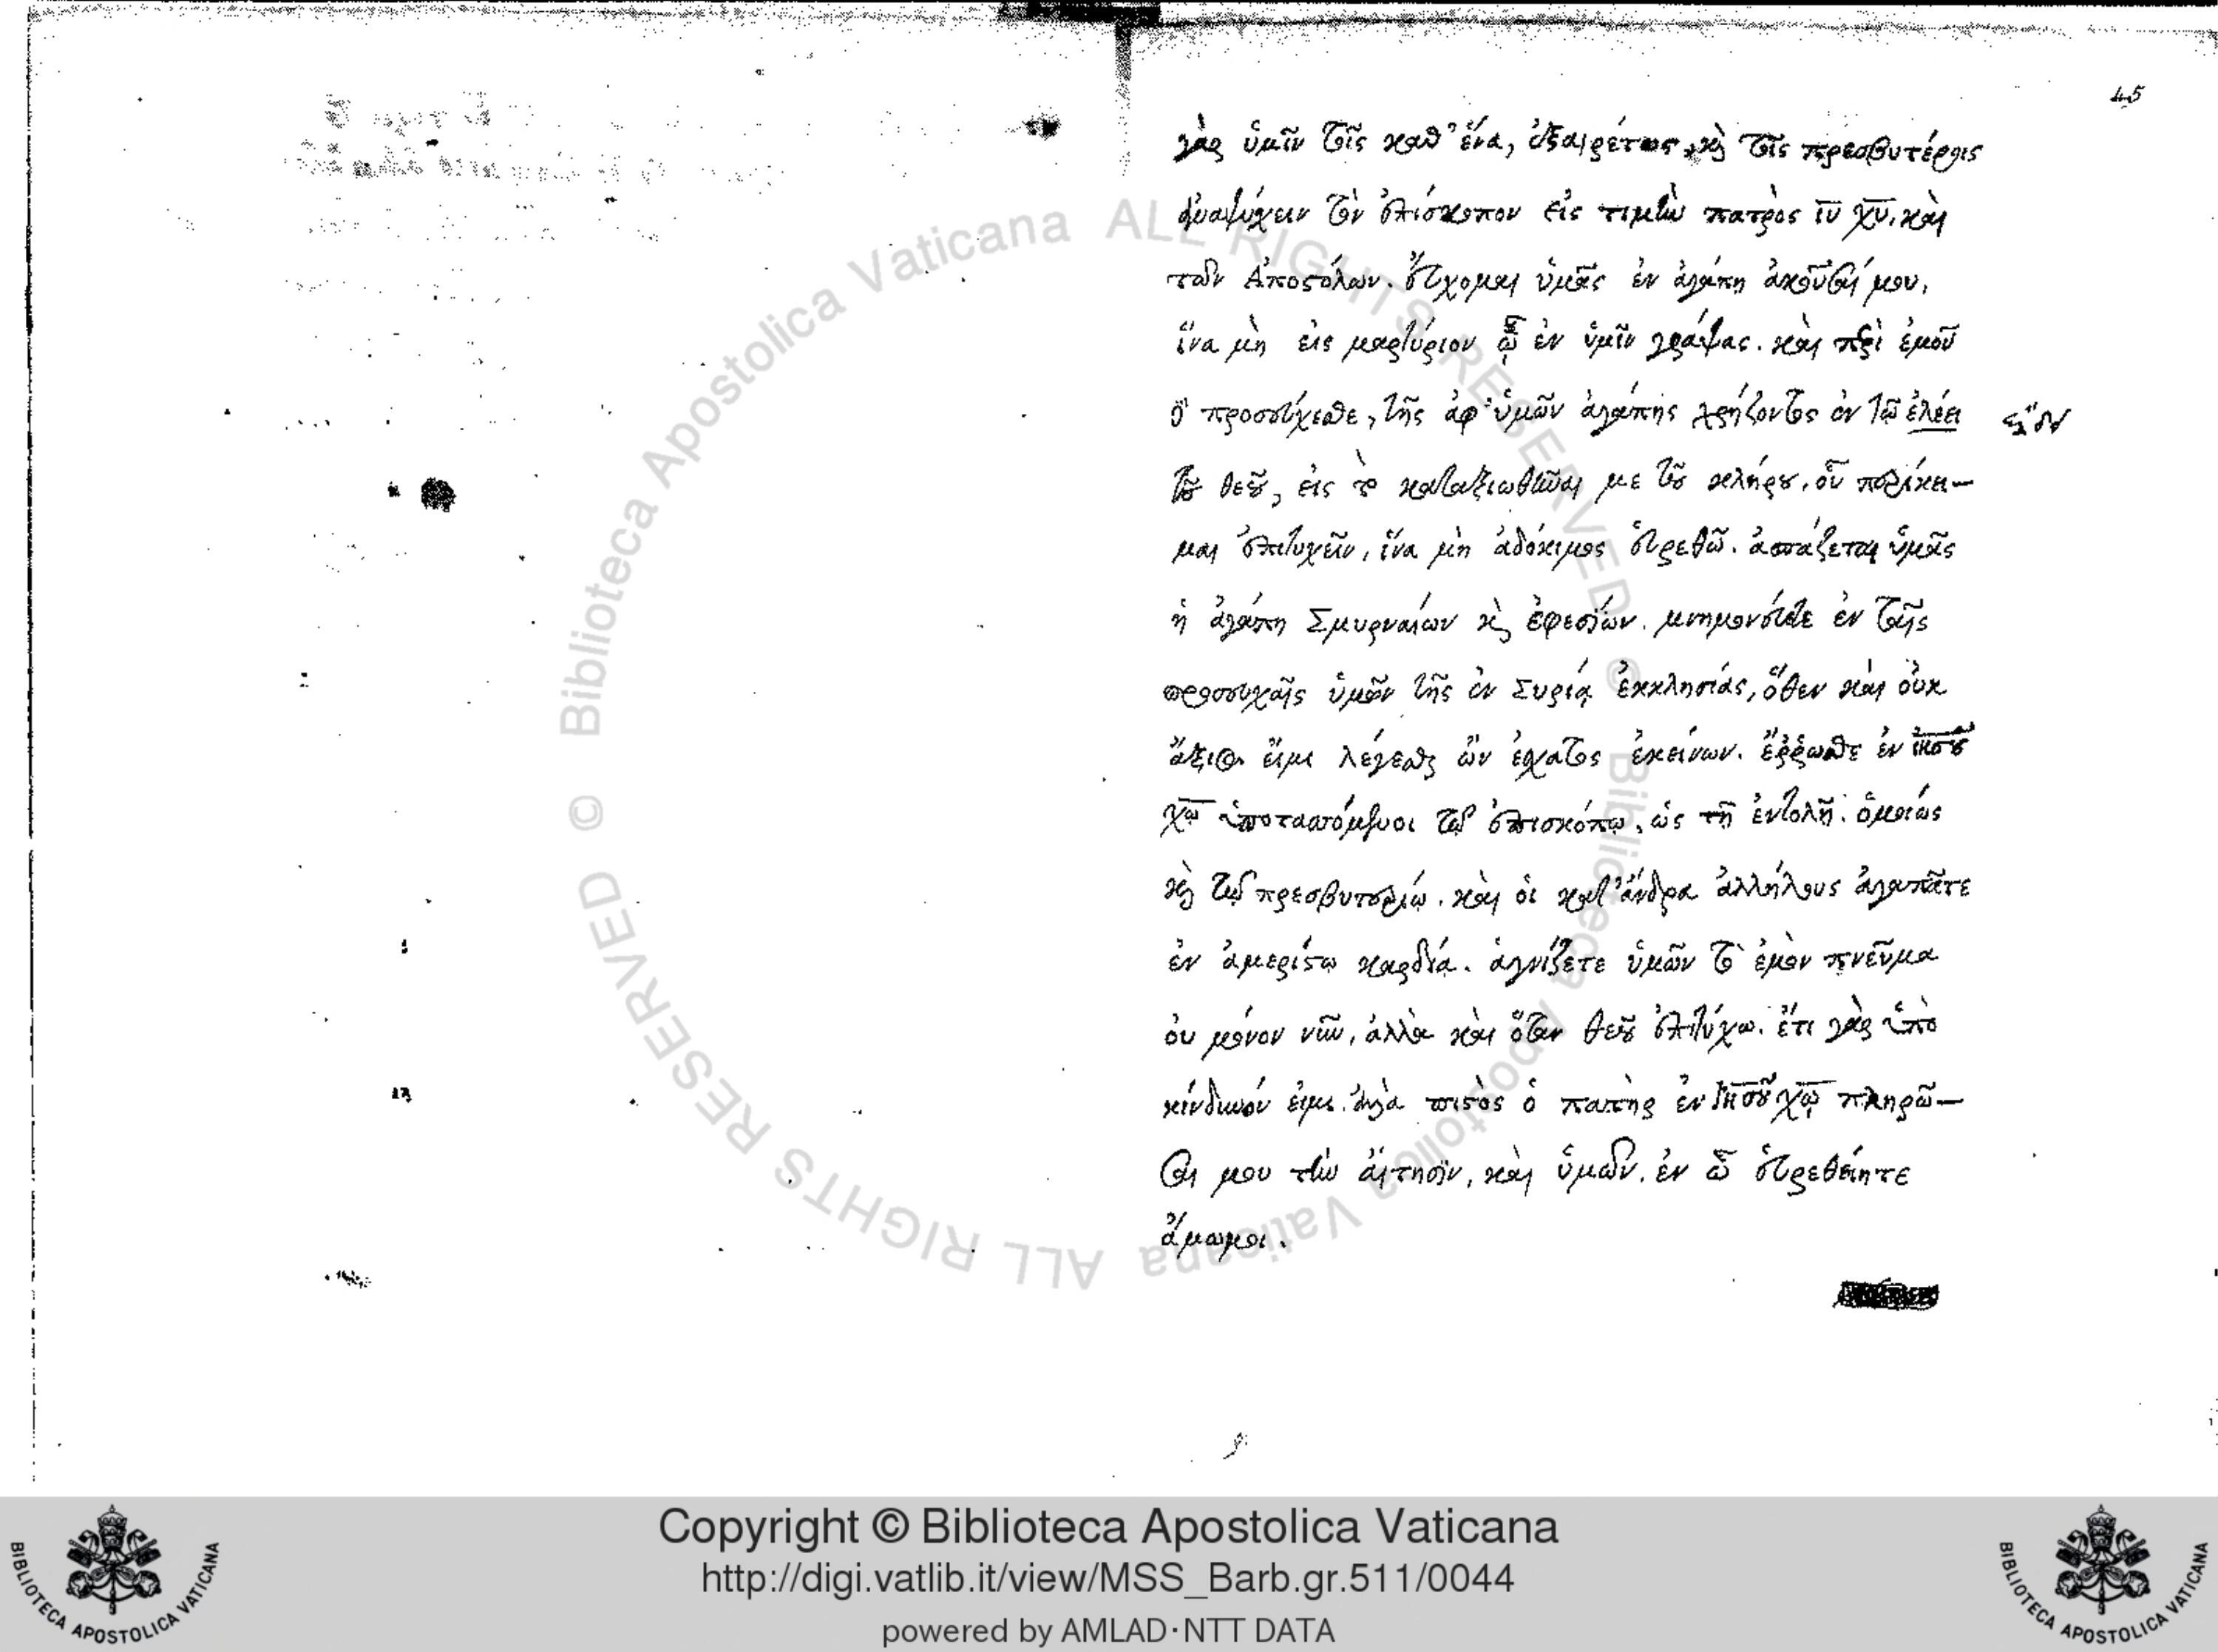 45
γὰρ ὑμῖν τοῖς καθ' ἕνα, ἐξαιρέτως καὶ τοῖς πρεσβυτέροις
ἀναψύχειν τὸν ἐπίσκοπον εἰς τιμὴν πατρὸς ιυ χυ, καὶ
τῶν Ἀποστόλων. εὔχομαι ὑμᾶς ἐν ἀγάπῃ ἀκοῦσαί μου,
ἵνα μὴ εἰς μαρτύριον ᾧ ἐν ὑμῖν γράψας. καὶ περὶ ἐμοῦ
προσεύχεσθε, τῆς ἀφ' ὑμῶν ἀγάπης χρήζοντος ἐν τῷ ἐλέει
τοῦ θεοῦ, εἰς τὸ καταξιωθῆναί με τοῦ κλήρου, οὗ περίκει-
μαι ἐπιτυχεῖν, ἵνα μὴ ἀδόκιμος εὑρεθῶ. ἀσπάζεται ὑμᾶς
ἡ ἀγάπη Σμυρναίων καὶ ἐφεσίων. μνημονεύετε ἐν ταῖς
προσευχαῖς ὑμῶν τῆς ἐν Συρίᾳ ἐκκλησίας, ὅθεν καὶ οὐκ
ἄξιος εἴμι λέγεσθαι ὢν ἔσχατος ἐκείνων. ἔῤῥωσθε ἐν ἰησοῦ
χῶ ὑποτασσόμενοι τῷ ἐπισκόπῳ, ὡς τῇ ἐντολῇ. ὁμοίως
καὶ τῷ πρεσβυτερίῳ. καὶ οἱ κατ' ἄνδρα ἀλλήλους ἀγαπᾶτε
ἐν ἀμερίστῳ καρδίᾳ. ἁγνίζετε ὑμῶν τὸ ἐμὸν πνεῦμα
οὐ μόνον νῦν, ἀλλὰ καὶ ὅταν θεοῦ ἐπιτύχω. ἔτι γὰρ ὑπὸ
κίνδυνόν εἰμι. ἀλλὰ πιστὸς ὁ πατὴρ ἐν Ἰησοῦ χῷ πληρῶ-
σαι μου τὴν αἴτησιν, καὶ ὑμῶν. ἐν ᾧ εὑρεθείητε
ἄμωμοι.
Copyright © Biblioteca Apostolica Vaticana
http://digi.vatlib.it/view/MSS_Barb.gr.511/0044
powered by AMLAD·NTT DATA
BIBLIOTECA APOSTOLICA VATICANA
BIBLIOTECA APOSTOLICA VATICANA
© Biblioteca Apostolica Vaticana ALL RIGHTS RESERVED
© Biblioteca Apostolica Vaticana ALL RIGHTS RESERVED